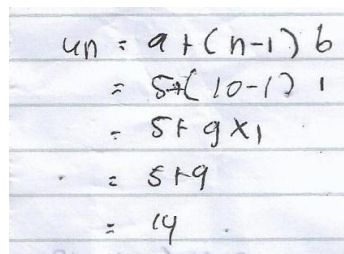 un = a + (n-1) b
= 5+(10-1) 1
= 5+ 9x1
= 5+9
= 14